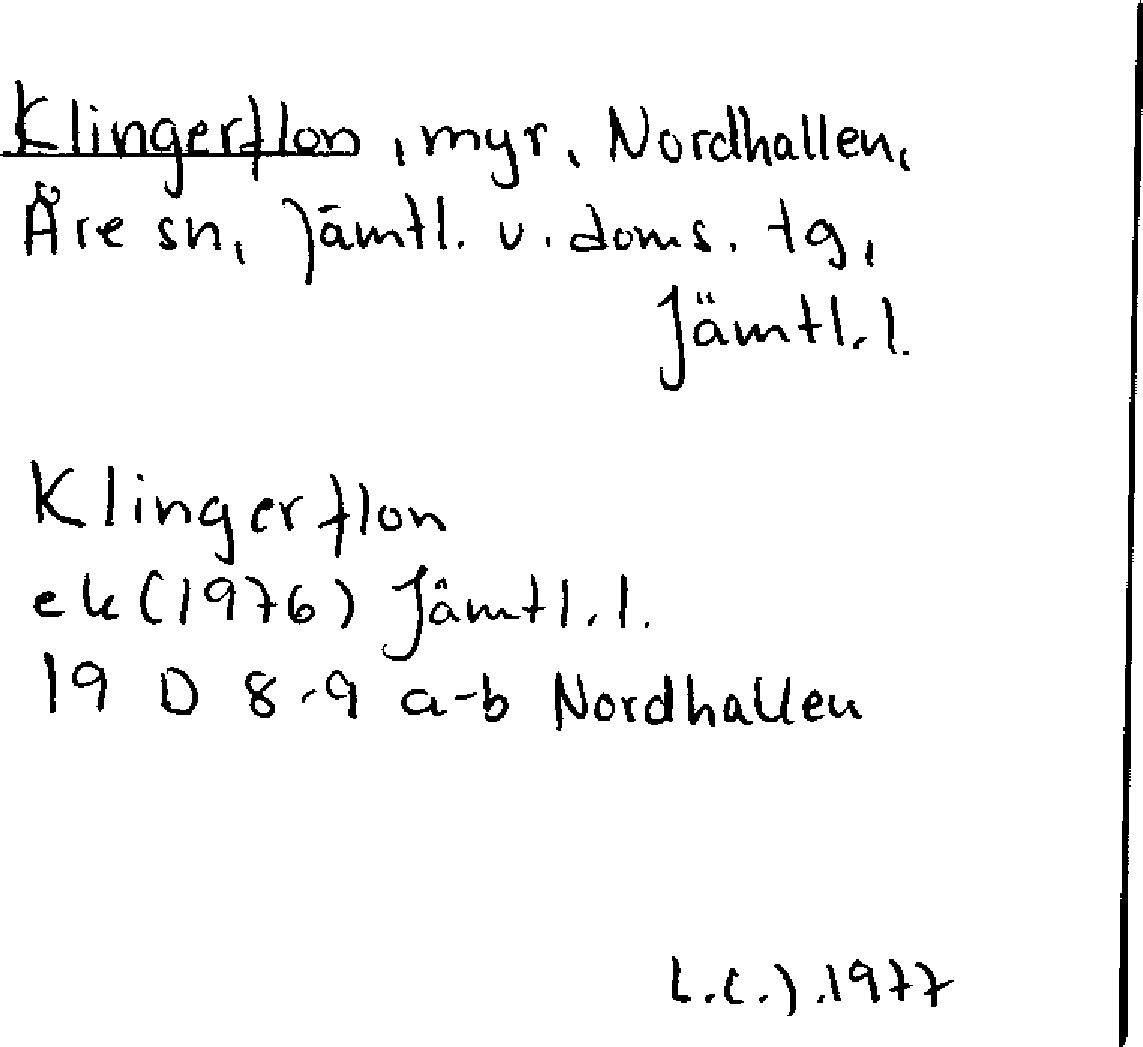 Klingerflon, myr, Nordhallen,
Åre sn, Jämtl. v. doms. tg,
Jämtl. l.
Klingerflon
ek (1976) Jämtl. l.
19 D 8-9 a-b Nordhallen
L.C.J. 1977